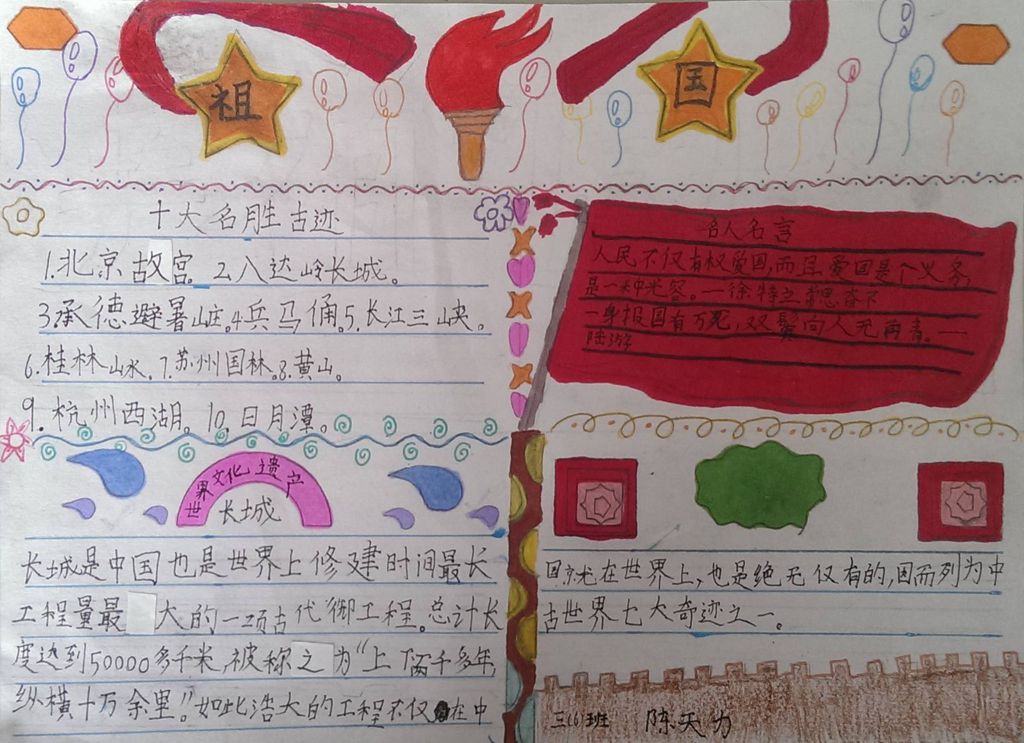 祖国
十大名胜古迹
1.北京故宫.2.八达岭长城。
3.承德避暑山庄.4兵马俑.5.长江三峡。
6.桂林山水.7.苏州园林.8.黄山。
9.杭州西湖。10.日月潭。
名人名言
人民不仅有权爱国,而且爱国是个义务,
是一种光容。一徐特立
一身报国有万死,双鬓向人无再青。一
陆游
世界文化遗产
长城
长城是中国也是世界上修建时间最长
工程量最大的一项古代御工程。总计长
度达到50000多千米,被称之为“上下两千多年,
纵横十万余里。”如此浩大的工程不仅在中
国就在世界上,也是绝无仅有的,因而列为中
古世界七大奇迹之一。
三(6)班 陈天力